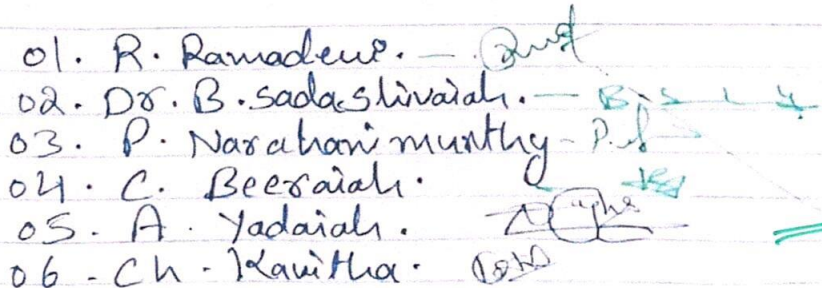 01. R. Ramadevi. —
02. Dr. B. Sadashivaiah. —
03. P. Naraharimurthy -
04. C. Beeraiah.
05. A. Yadaiah.
06 - Ch. Kavitha.